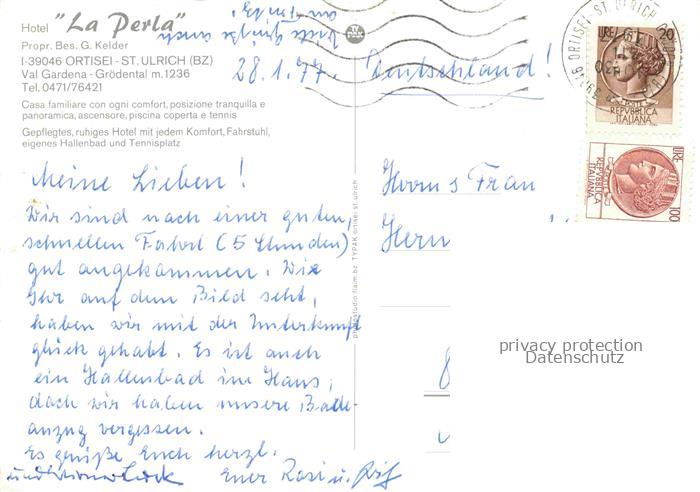 Hotel "La Perla"
Propr. Bes. G. Kelder
I-39046 ORTISEI - ST. ULRICH (BZ)
Val Gardena - Grödental m. 1236
Tel. 0471/76421
Casa familiare con ogni comfort, posizione tranquilla e
panoramica, ascensore, piscina coperta e tennis
Gepflegtes, ruhiges Hotel mit jedem Komfort, Fahrstuhl,
eigenes Hallenbad und Tennisplatz
28.1.77
Meine Lieben!
Wir sind nach einer guten,
schnellen Fahrt (5 Stunden)
gut angekommen. Wie
Ihr auf dem Bild seht,
haben wir mit der Unterkunft
glück gehabt. Es ist auch
ein Hallenbad im Haus,
doch wir haben unsere Bade-
anzug vergessen.
Es grüße Euch herzl.
Euer Rosi u.
photostudio flaim bz TYPAK ortisei st. ulrich
Deutschland!
Herrn & Frau
Herrn
ORTISEI ST. ULRICH
LIRE 20
POSTE
REPVBBLICA
ITALIANA
LIRE 100
POSTE
REPVBBLICA
ITALIANA
privacy protection
Datenschutz